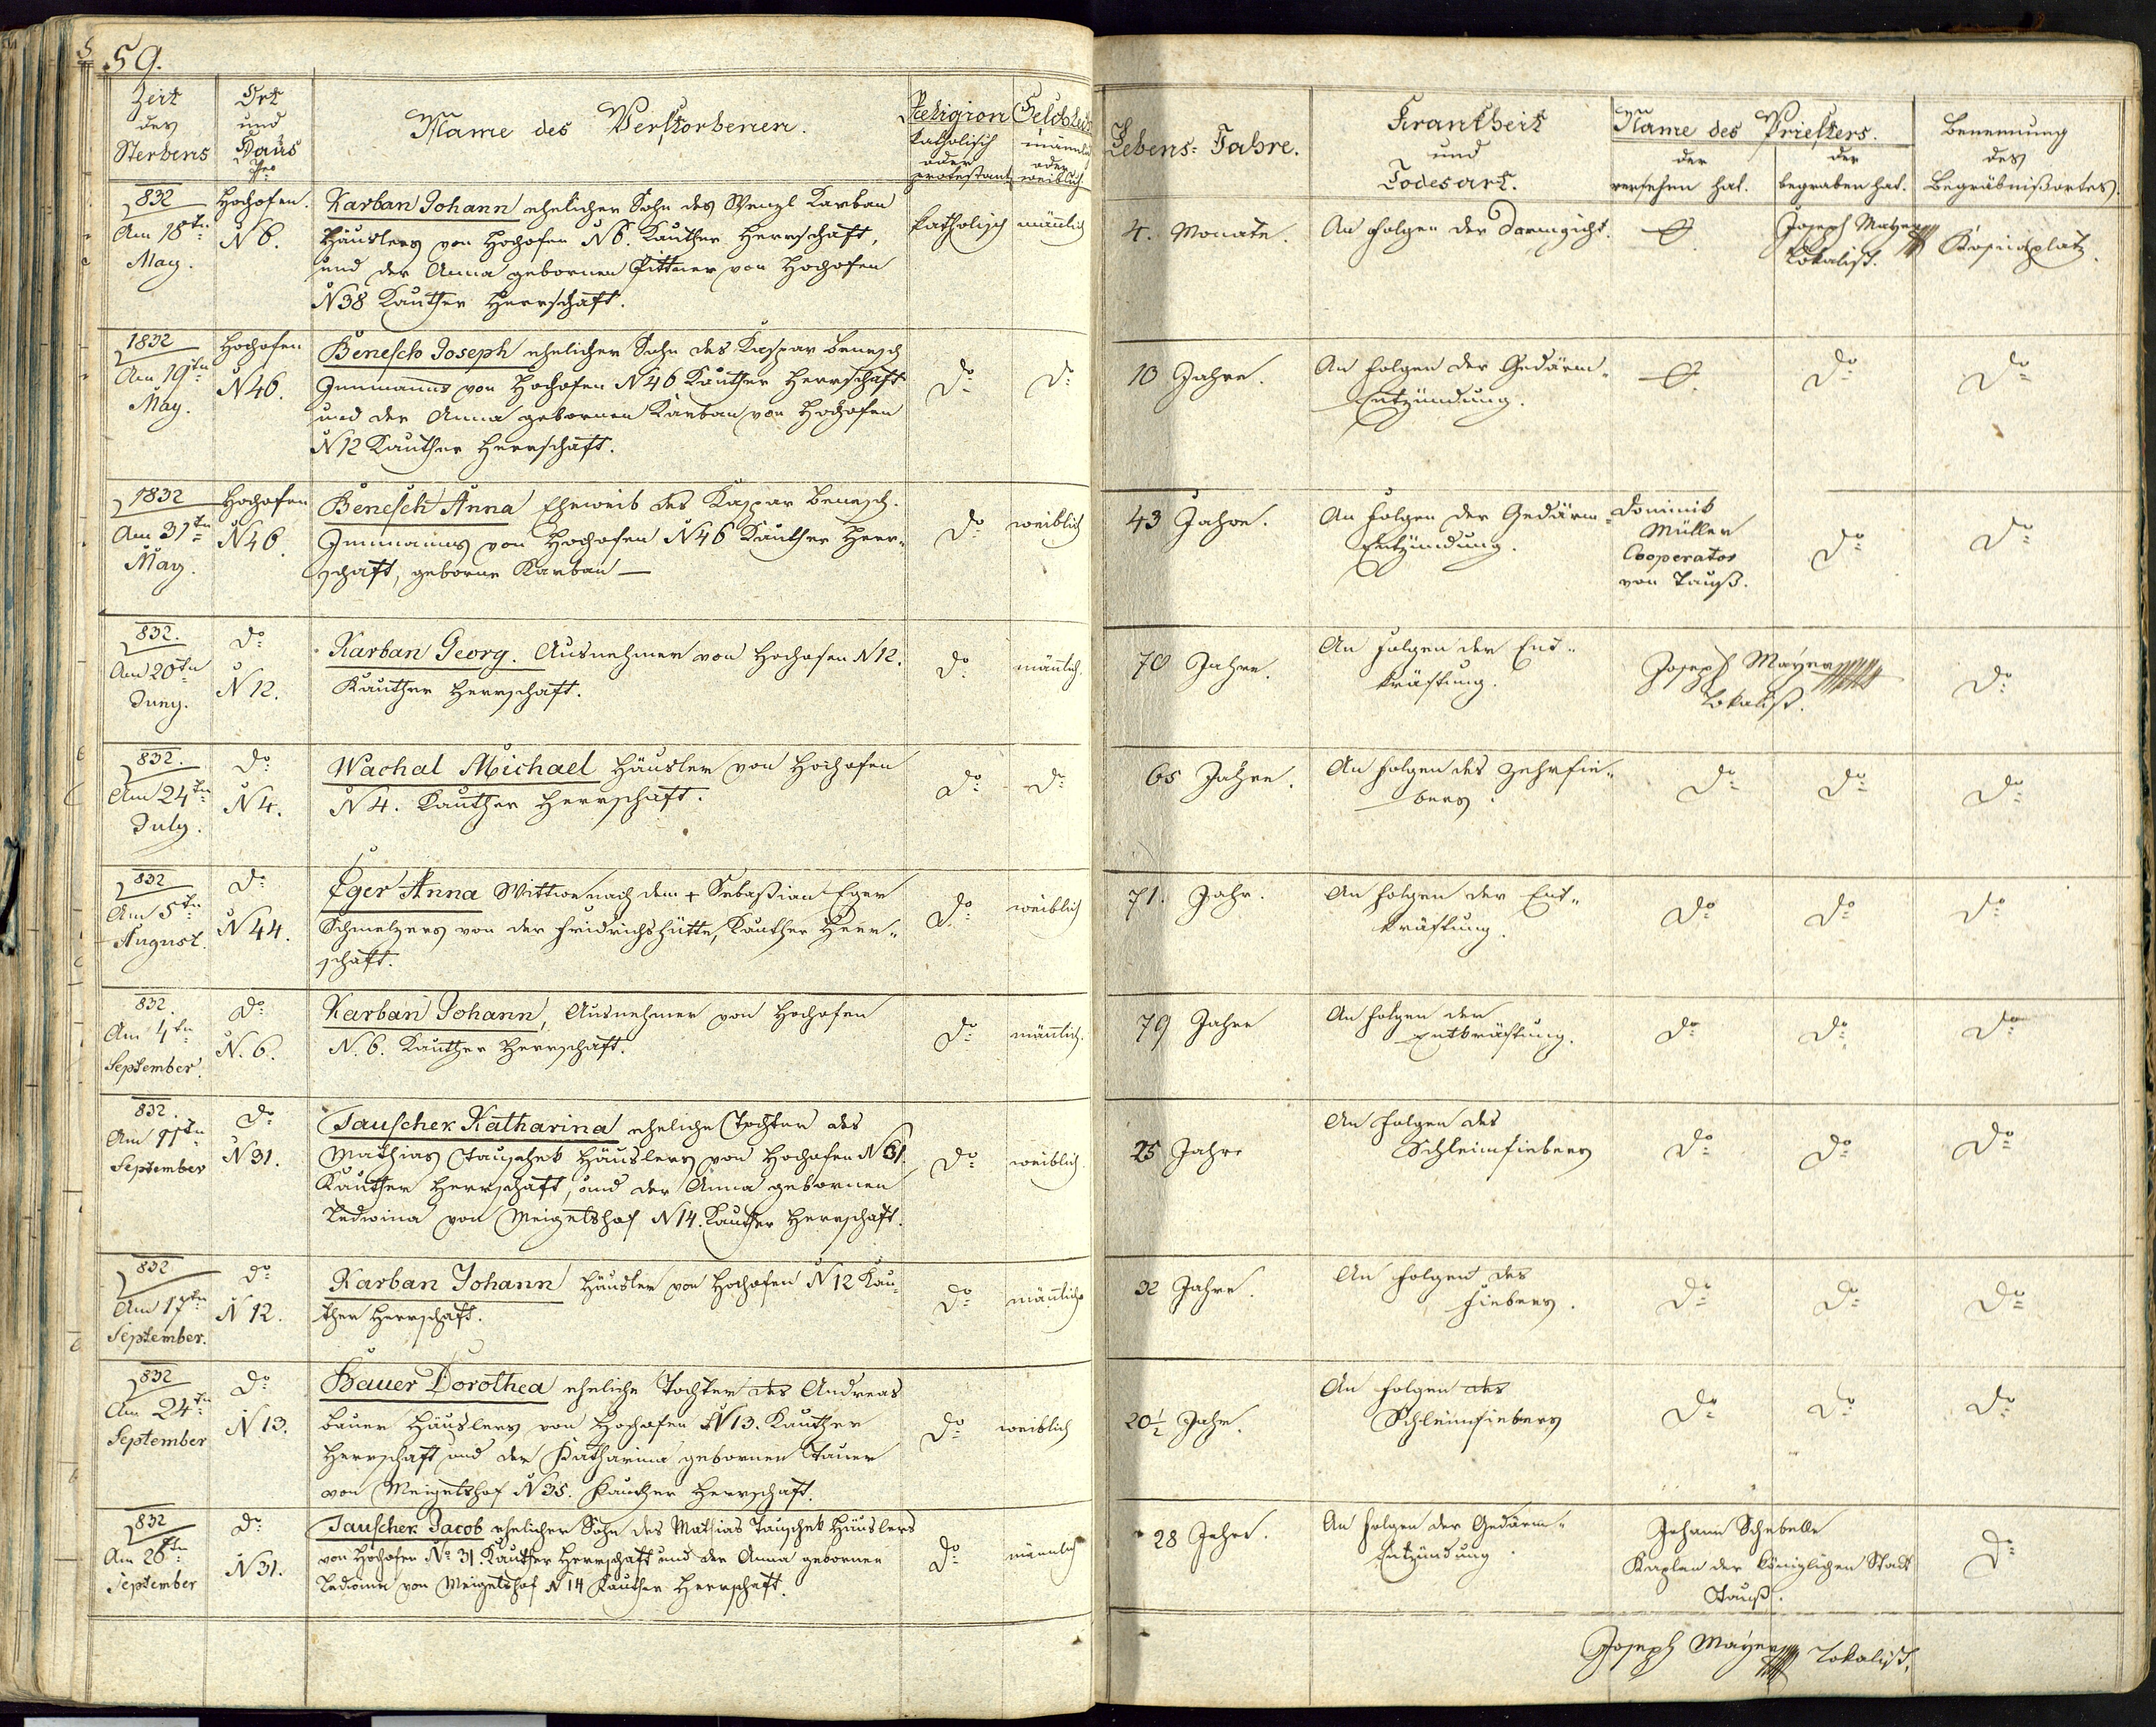 59.
Zeit des Sterbens
Ort und Haus Nro
Name des Verstorbenen.
Religion katholisch oder protestant.
Geschlecht männlich oder weiblich
Lebens-Jahre.
Krankheit und Todesart.
Name des Priesters.
der versehen hat.
der begraben hat.
Benennung des Begräbnißortes.
832 Am 18tn May.
Hochofen. N 6.
Karban Johann ehelicher Sohn des Wenzl Karban
Häuslers von Hochofen N 6. Kauther Herrschaft,
und der Anna gebornen Pittner von Hochofen
N 38 Kauther Herrschaft.
katholisch männlich
4. Monate.
An Folgen der Darmgicht.
Joseph Mayer Lokalist.
1832 Am 19tn May.
Hochofen N 46.
Benesch Joseph ehelicher Sohn des Kaspar Benesch
Innmanns von Hochofen N 46 Kauther Herrschaft
und der Anna gebornen Karban von Hochofen
N 12 Kauther Herrschaft.
do do
10 Jahre.
An Folgen der Gedärm-
Entzündung.
do do
1832 Am 31tn May.
Hochofen N 46.
Benesch Anna Eheweib des Kaspar Benesch.
Innmanns von Hochofen N 46 Kauther Herr-
schaft, geborne Karban —
do weiblich
43 Jahre.
An Folgen der Gedärm-
Entzündung.
Dominik
Müller
Cooperator
von Tauß.
do do
832. Am 20tn Juny.
do N 12.
Karban Georg. Ausnehmer von Hochofen N 12.
Kauther Herrschaft.
do männlich.
70 Jahre.
An Folgen der Ent-
kräftung.
Joseph Mayer
Lokalist.
do
832. Am 24tn July.
do N 4.
Wachal Michael Häusler von Hochofen
N 4. Kauther Herrschaft.
do do
65 Jahre.
An Folgen des Zehrfie-
bers.
do do do
832 Am 5tn August.
do N 44.
Eger Anna Wittwe nach dem + Sebastian Eger
Schmelzers von der Fridrichshütte, Kauther Herr-
schaft.
do weiblich
71. Jahr.
An Folgen der Ent-
kräftung.
do do do
832. Am 4tn September.
do N. 6.
Karban Johann, Ausnehmer von Hochofen
N. 6. Kauther Herrschaft.
do männlich.
79 Jahre
An Folgen der
Entkräftung.
do do do
832. Am 11tn September
do N 31.
Tauschek Katharina eheliche Tochter des
Mathias Tauschek Häuslers von Hochofen N 31.
Kauther Herrschaft, und der Anna gebornen
Ledwina von Meigelshof N 14. Kauther Herrschaft.
do weiblich
25 Jahre
An Folgen des
Schleimfiebers
do do do
832 Am 17tn September.
do N 12.
Karban Johann Häusler von Hochofen N 12 Kau-
ther Herrschaft.
do männlich
32 Jahre.
An Folgen des
Fiebers.
do do do
832 Am 24tn September
do N 13.
Bauer Dorothea eheliche Tochter des Andreas
Bauer Häuslers von Hochofen N 13. Kauther
Herrschaft und der Katharina gebornen Tauer
von Meigelshof N 35. Kauther Herrschaft.
do weiblich
20½ Jahr.
An Folgen des
Schleimfiebers
do do do
832 Am 26tn September
do N 31.
Tauschek Jacob ehelicher Sohn des Mathias Tauschek Häuslers
von Hochofen No 31. Kauther Herrschaft und der Anna gebornen
Ledwina von Meigelshof N 14 Kauther Herrschaft.
do männlich
28 Jahre.
An Folgen der Gedärm-
Entzündung.
Johann Schebelle
Kaplan der königlichen Stadt
Tauß.
do
Joseph Mayer Lokalist.